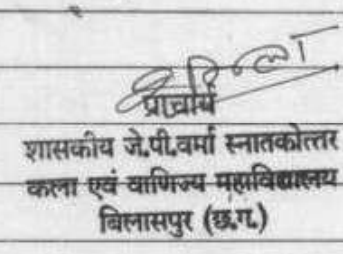 प्राचार्य
शासकीय जे.पी.वर्मा स्नातकोत्तर
कला एवं वाणिज्य महाविद्यालय
बिलासपुर (छ.ग.)